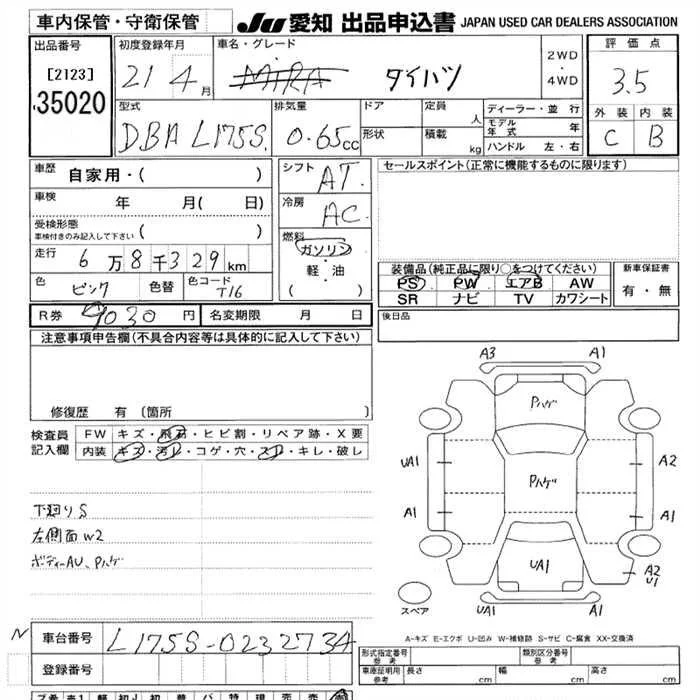 車内保管・守衛保管 JU 愛知 出品申込書 JAPAN USED CAR DEALERS ASSOCIATION
出品番号
[2123]
35020
初度登録年月
21 4月
車名・グレード
MIRA ダイハツ
2WD
・
4WD
評価点
3.5
外装 内装
C B
型式
DBA L175S
排気量
0.65cc
ドア
形状
定員 人
積載 kg
ディーラー・並行
モデル年式 年
ハンドル 左・右
車歴 自家用・( )
車検 年 月( 日)
受検形態
車検付きのみ記入して下さい ( )
走行 6万8千329km
色 ピンク 色替 色コード T16
シフト AT
冷房 AC
燃料
ガソリン
軽・油
( )
セールスポイント(正常に機能するものに限ります)
装備品(純正品に限り○をつけてください)
PS PW エアB AW
SR ナビ TV カワシート
新車保証書
有・無
R券 9030円 名変期限 月 日
後日品
注意事項申告欄(不具合内容等は具体的に記入して下さい)
修復歴 有 〔箇所 〕
検査員記入欄
FW キズ・飛石・ヒビ割・リペア跡・X要
内装 キズ・汚レ・コゲ・穴・スレ・キレ・破レ
下廻りS
左側面W2
ボディーAU、Pハゲ
A3 A1
Pハゲ
UA1 A2
Pハゲ
A1 A1
UA1
A2
U1
スペア
UA1 A1
A-キズ E-エクボ U-凹み W-補修跡 S-サビ C-腐食 XX-交換済
N 車台番号 L175S-0232734
登録番号
形式指定番号
参考
類別区分番号
参考
車庫証明用
参考
長さ cm 幅 cm 高さ cm